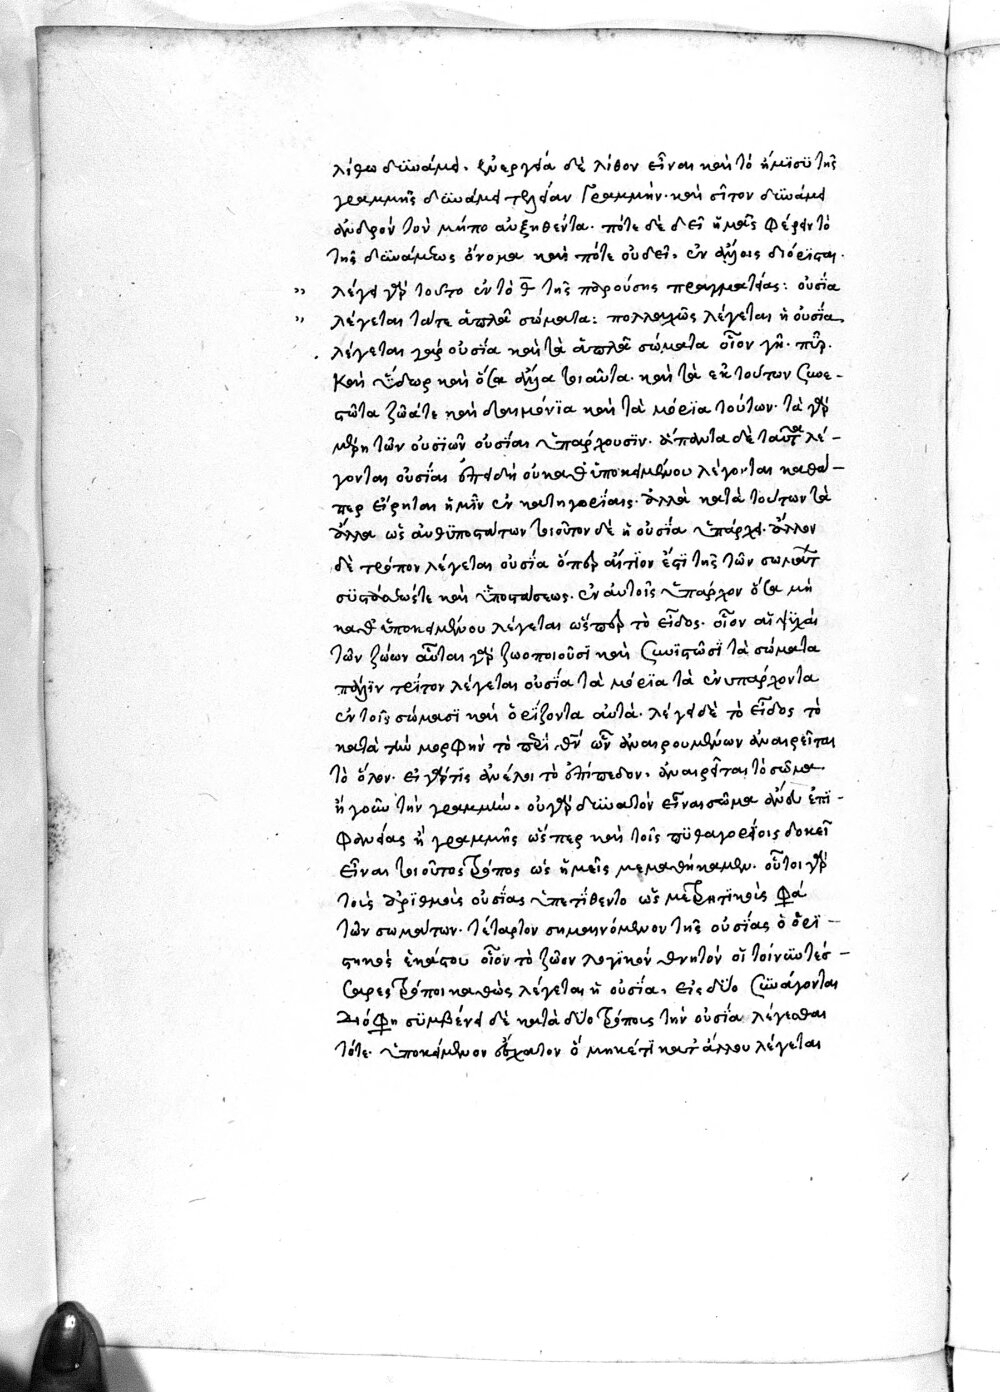 λίθω δυνάμει. ἐνεργεία δὲ λίθον εἶναι καὶ τὸ ἥμισυ τῆς
γραμμῆς δυνάμει τελείαν γραμμήν. καὶ σῖτον δυνάμει
ἁνδρὸν τὸν μήπο αὐξηθέντα. πότε δὲ δεῖ ἡμᾶς φέρειν τὸ
τῆς δυνάμεως ὄνομα καὶ πότε οὐδεῖ, ἐν ἄλλοις διόρισται.
λέγει γὰρ τοῦτο ἐν τὸ θ̅ τῆς παρούσης πραγματείας: οὐσία
λέγεται τάτε ἁπλᾶ σώματα: πολλαχῶς λέγεται ἡ οὐσία.
λέγεται γὰρ οὐσία καὶ τὰ ἁπλᾶ σώματα οἷον γῆ. πῦρ.
Καὶ ὕδωρ καὶ ὅσα ἄλλα τοιαῦτα. καὶ τὰ ἐκ τούτων συνε-
στῶτα ζῶάτε καὶ δαιμόνϊα καὶ τὰ μόρϊα τούτων. τὰ γὰρ
μέρη τῶν οὐσϊῶν οὐσίαι ὑπάρχουσϊν. ἅπαντα δὲ ταῦτα λέ-
γονται οὐσίαι ἐπειδὴ οὐ καθ' ὑποκειμένου λέγονται καθά-
περ εἴρηται ἡμῖν ἐν κατηγορίαις. ἀλλὰ κατὰ τούτων τὰ
ἄλλα ὡς ἀνθϋποστάτων τοιοῦτον δὲ ἡ οὐσία ὑπάρχει. ἄλλον
δὲ τρόπον λέγεται οὐσία ὅπερ αἴτϊον ἐστϊ τῆς τῶν σωμάτ
συστάσεώς τε καὶ ὑποστάσεως. ἐν αὐτοῖς ὑπάρχον ὅσα μὴ
καθ' ὑποκειμένου λέγεται ὥσπερ τὸ εἶδος. οἷον αἱ ψϋχαὶ
τῶν ζώων αὗται γὰρ ζωοποιοῦσι καὶ συνϊστῶσϊ τὰ σώματα
πάλϊν τρίτον λέγεται οὐσία τὰ μόρϊα τὰ ἐνυπάρχοντα
ἐν τοῖς σώμασϊ καὶ ὁρίζοντα αὐτά. λέγει δὲ τὸ εἶδος τὸ
κατὰ τὴν μορφὴν τὸ περὶ ὧν ἀναιρουμένων ἀναιρεῖται
τὸ ὅλον. εἰ γάρ τις ἀνέλοι τὸ ἐπίπεδον. ἀναιρεῖται τὸ σῶμα.
ἤγουν τὴν γραμμήν. οὐ γὰρ δυνατὸν εἶναι σῶμα ἄνευ ἐπϊ-
φανείας ἢ γραμμῆς ὥσπερ καὶ τοῖς πϋθαγορείοις δοκεῖ
εἶναι τοιοῦτος τρόπος ὡς ἡμεῖς μεμαθήκαμεν. οὗτοι γὰρ
τοὺς ἀρϊθμοὺς οὐσίας ὑπετίθεντο ὡς μετρητϊκοὺς
τῶν σωμάτων. τέταρτον σημαινόμενον τῆς οὐσίας ὁ ὁρϊ-
στικὸς ἑκάστου οἷον τὸ ζῶον λογϊκὸν θνητόν οἱ τοίνϋν τέσ-
σαρες τρόποι καθὼς λέγεται ἡ οὐσία, εἰς δύο συνάγονται
Διό φη συμβαίνει δὲ κατὰ δύο τρόπους τὴν οὐσία λέγεσθαι
τότε. ὑποκείμενον ἔσχατον ὃ μηκέτϊ κατ' ἄλλου λέγεται